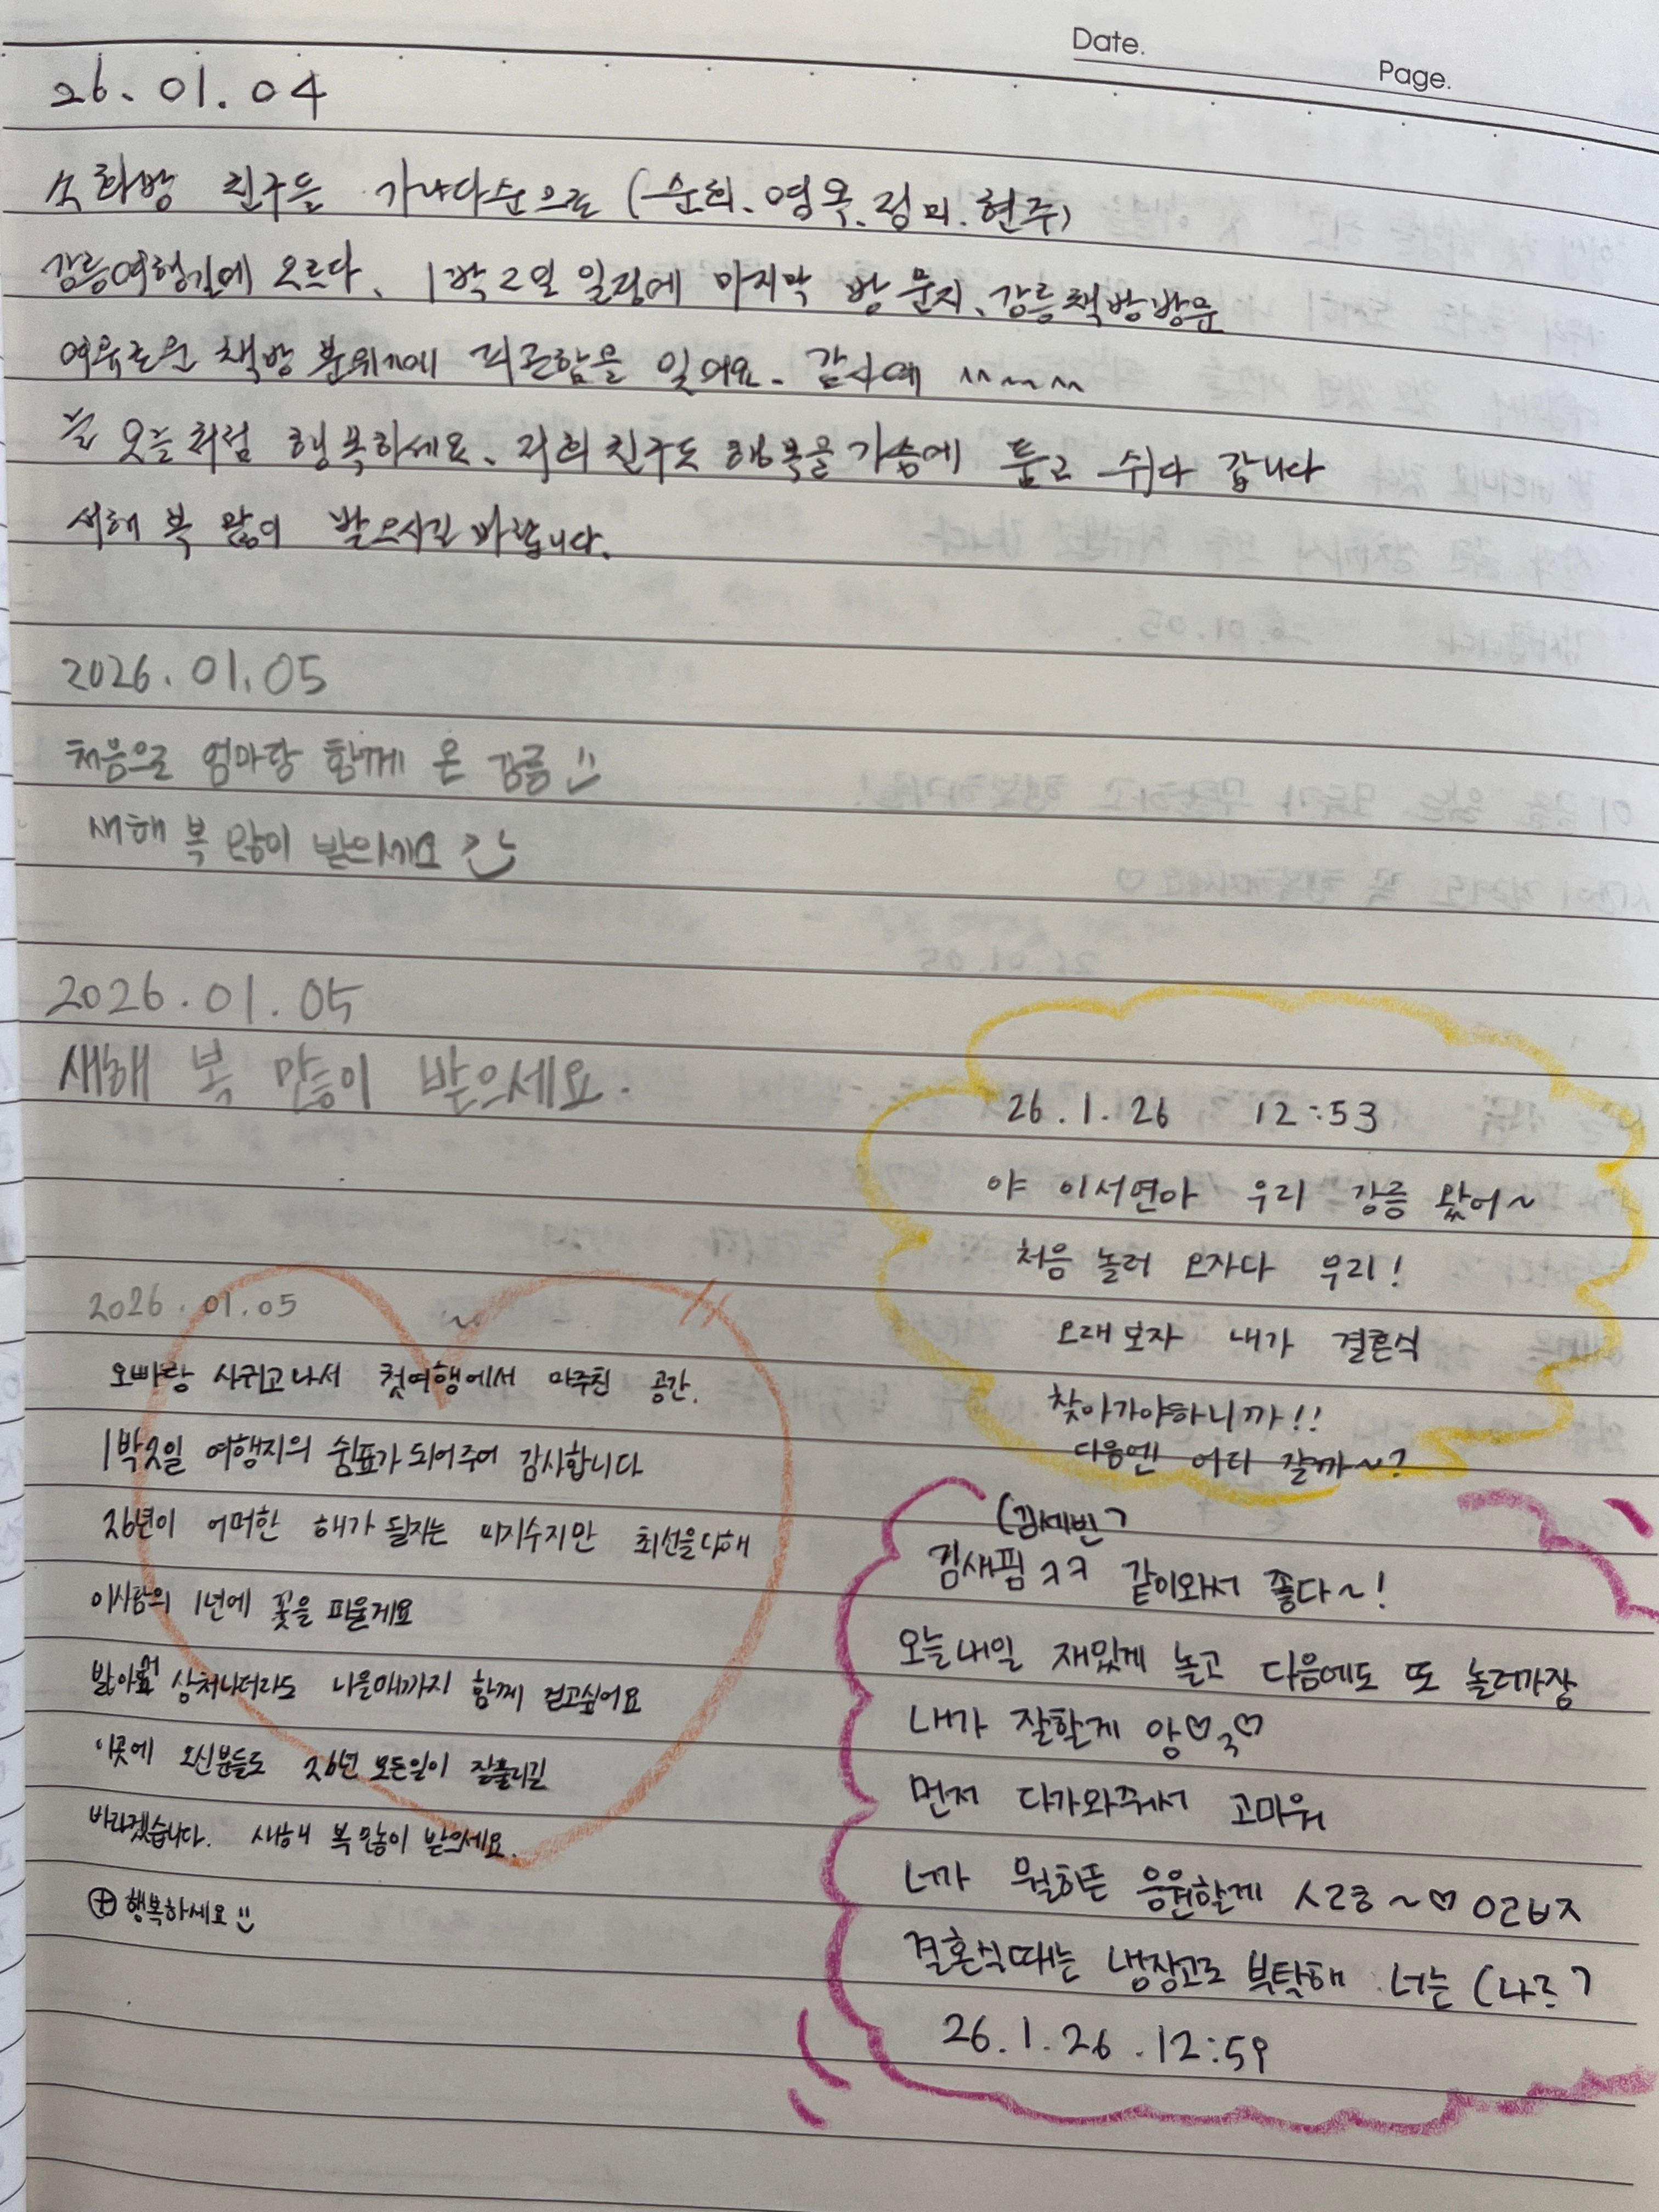 Date.
Page.
26.01.04
소화방 친구들 가나다순으로 (순희.영옥.정미.현주)
강릉여행길에 오르다. 1박2일 일정에 마지막 방문지. 강릉책방방문
여유로운 책방 분위기에 피곤함을 잊어요. 감사에 ^^~~~
늘 오늘처럼 행복하세요. 저희 친구도 행복을 가슴에 품고 쉬다 갑니다
새해 복 많이 받으시길 바랍니다.
2026.01.05
처음으로 엄마랑 함께 온 강릉
새해 복 많이 받으세요
2026.01.05
새해 복 많이 받으세요.
2026.01.05
오빠랑 사귀고나서 첫여행에서 마주친 공간.
1박2일 여행지의 쉼표가 되어주어 감사합니다
26년이 어떠한 해가 될지는 미지수지만 최선을다해
이사람의 1년에 꽃을 피울게요
상처나더라도 나을때까지 함께 걷고싶어요
이곳에 오신분들도 26년 모든일이 잘풀리길
바라겠습니다. 새해 복 많이 받으세요.
⊕ 행복하세요
26.1.26 12:53
야 이서연아 우리 강릉 왔어~
처음 놀러 오자다 우리!
오래보자 내가 결혼식
찾아가야하니까!!
다음엔 어디 갈까~?
(김세빈?
김새핌 ㅋㅋ 같이와서 좋다~!
오늘내일 재밌게 놀고 다음에도 또 놀러가장
내가 잘할게 앙♡ㅋ♡
먼저 다가와줘서 고마워
너가 뭘하든 응원할게 ㅅㄹㅎ~♡ ㅇㄹㅂㅈ
결혼식때는 냉장고로 부탁해 너는 (나ㄹ?
26.1.26.12:59